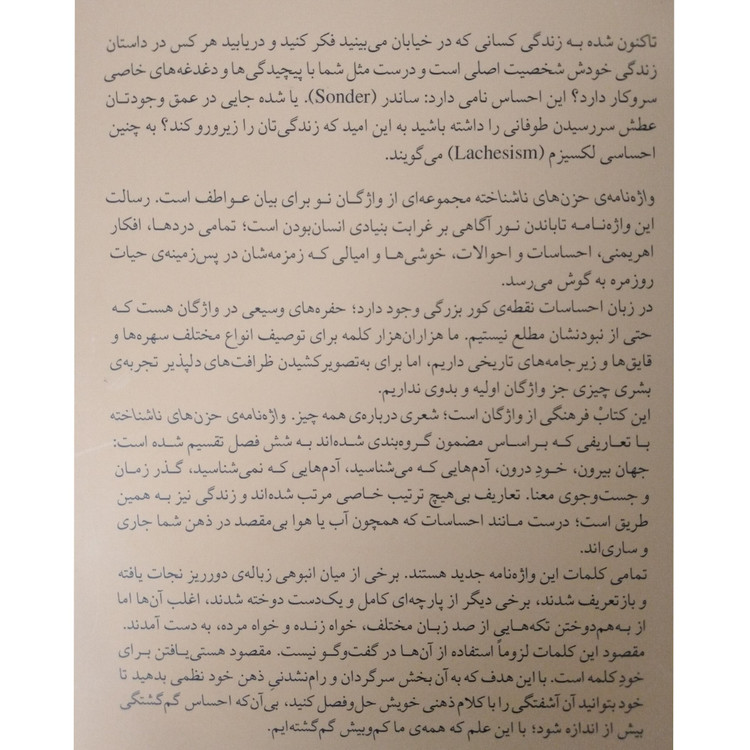 تاکنون شده به زندگی کسانی که در خیابان می‌بینید فکر کنید و دریابید هر کس در داستان
زندگی خودش شخصیت اصلی است و درست مثل شما با پیچیدگی‌ها و دغدغه‌های خاصی
سروکار دارد؟ این احساس نامی دارد: ساندر (Sonder). یا شده جایی در عمق وجودتان
عطش سررسیدن طوفانی را داشته باشید به این امید که زندگی‌تان را زیرورو کند؟ به چنین
احساسی لکسیزم (Lachesism) می‌گویند.
واژه‌نامه‌ی حزن‌های ناشناخته مجموعه‌ای از واژگان نو برای بیان عواطف است. رسالت
این واژه‌نامه تاباندن نور آگاهی بر غرابت بنیادی انسان‌بودن است؛ تمامی دردها، افکار
اهریمنی، احساسات و احوالات، خوشی‌ها و امیالی که زمزمه‌شان در پس‌زمینه‌ی حیات
روزمره به گوش می‌رسد.
در زبان احساسات نقطه‌ی کور بزرگی وجود دارد؛ حفره‌های وسیعی در واژگان هست که
حتی از نبودنشان مطلع نیستیم. ما هزاران‌هزار کلمه برای توصیف انواع مختلف سهره‌ها و
قایق‌ها و زیرجامه‌های تاریخی داریم، اما برای به‌تصویرکشیدن ظرافت‌های دلپذیر تجربه‌ی
بشری چیزی جز واژگان اولیه و بدوی نداریم.
این کتابْ فرهنگی از واژگان است؛ شعری درباره‌ی همه چیز. واژه‌نامه‌ی حزن‌های ناشناخته
با تعاریفی که براساس مضمون گروه‌بندی شده‌اند به شش فصل تقسیم شده است:
جهان بیرون، خودِ درون، آدم‌هایی که می‌شناسید، آدم‌هایی که نمی‌شناسید، گذر زمان
و جست‌وجوی معنا. تعاریف بی‌هیچ ترتیب خاصی مرتب شده‌اند و زندگی نیز به همین
طریق است؛ درست مانند احساسات که همچون آب یا هوا بی‌مقصد در ذهن شما جاری
و ساری‌اند.
تمامی کلمات این واژه‌نامه جدید هستند. برخی از میان انبوهی زباله‌ی دورریز نجات یافته
و بازتعریف شدند، برخی دیگر از پارچه‌ای کامل و یک‌دست دوخته شدند، اغلب آن‌ها اما
از به‌هم‌دوختن تکه‌هایی از صد زبان مختلف، خواه زنده و خواه مرده، به دست آمدند.
مقصود این کلمات لزوماً استفاده از آن‌ها در گفت‌وگو نیست. مقصود هستی‌یافتن برای
خودِ کلمه است. با این هدف که به آن بخش سرگردان و رام‌نشدنیِ ذهن خود نظمی بدهید تا
خود بتوانید آن آشفتگی را با کلام ذهنی خویش حل‌وفصل کنید، بی‌آن‌که احساس گم‌گشتگی
بیش از اندازه شود؛ با این علم که همه‌ی ما کم‌وبیش گم‌گشته‌ایم.